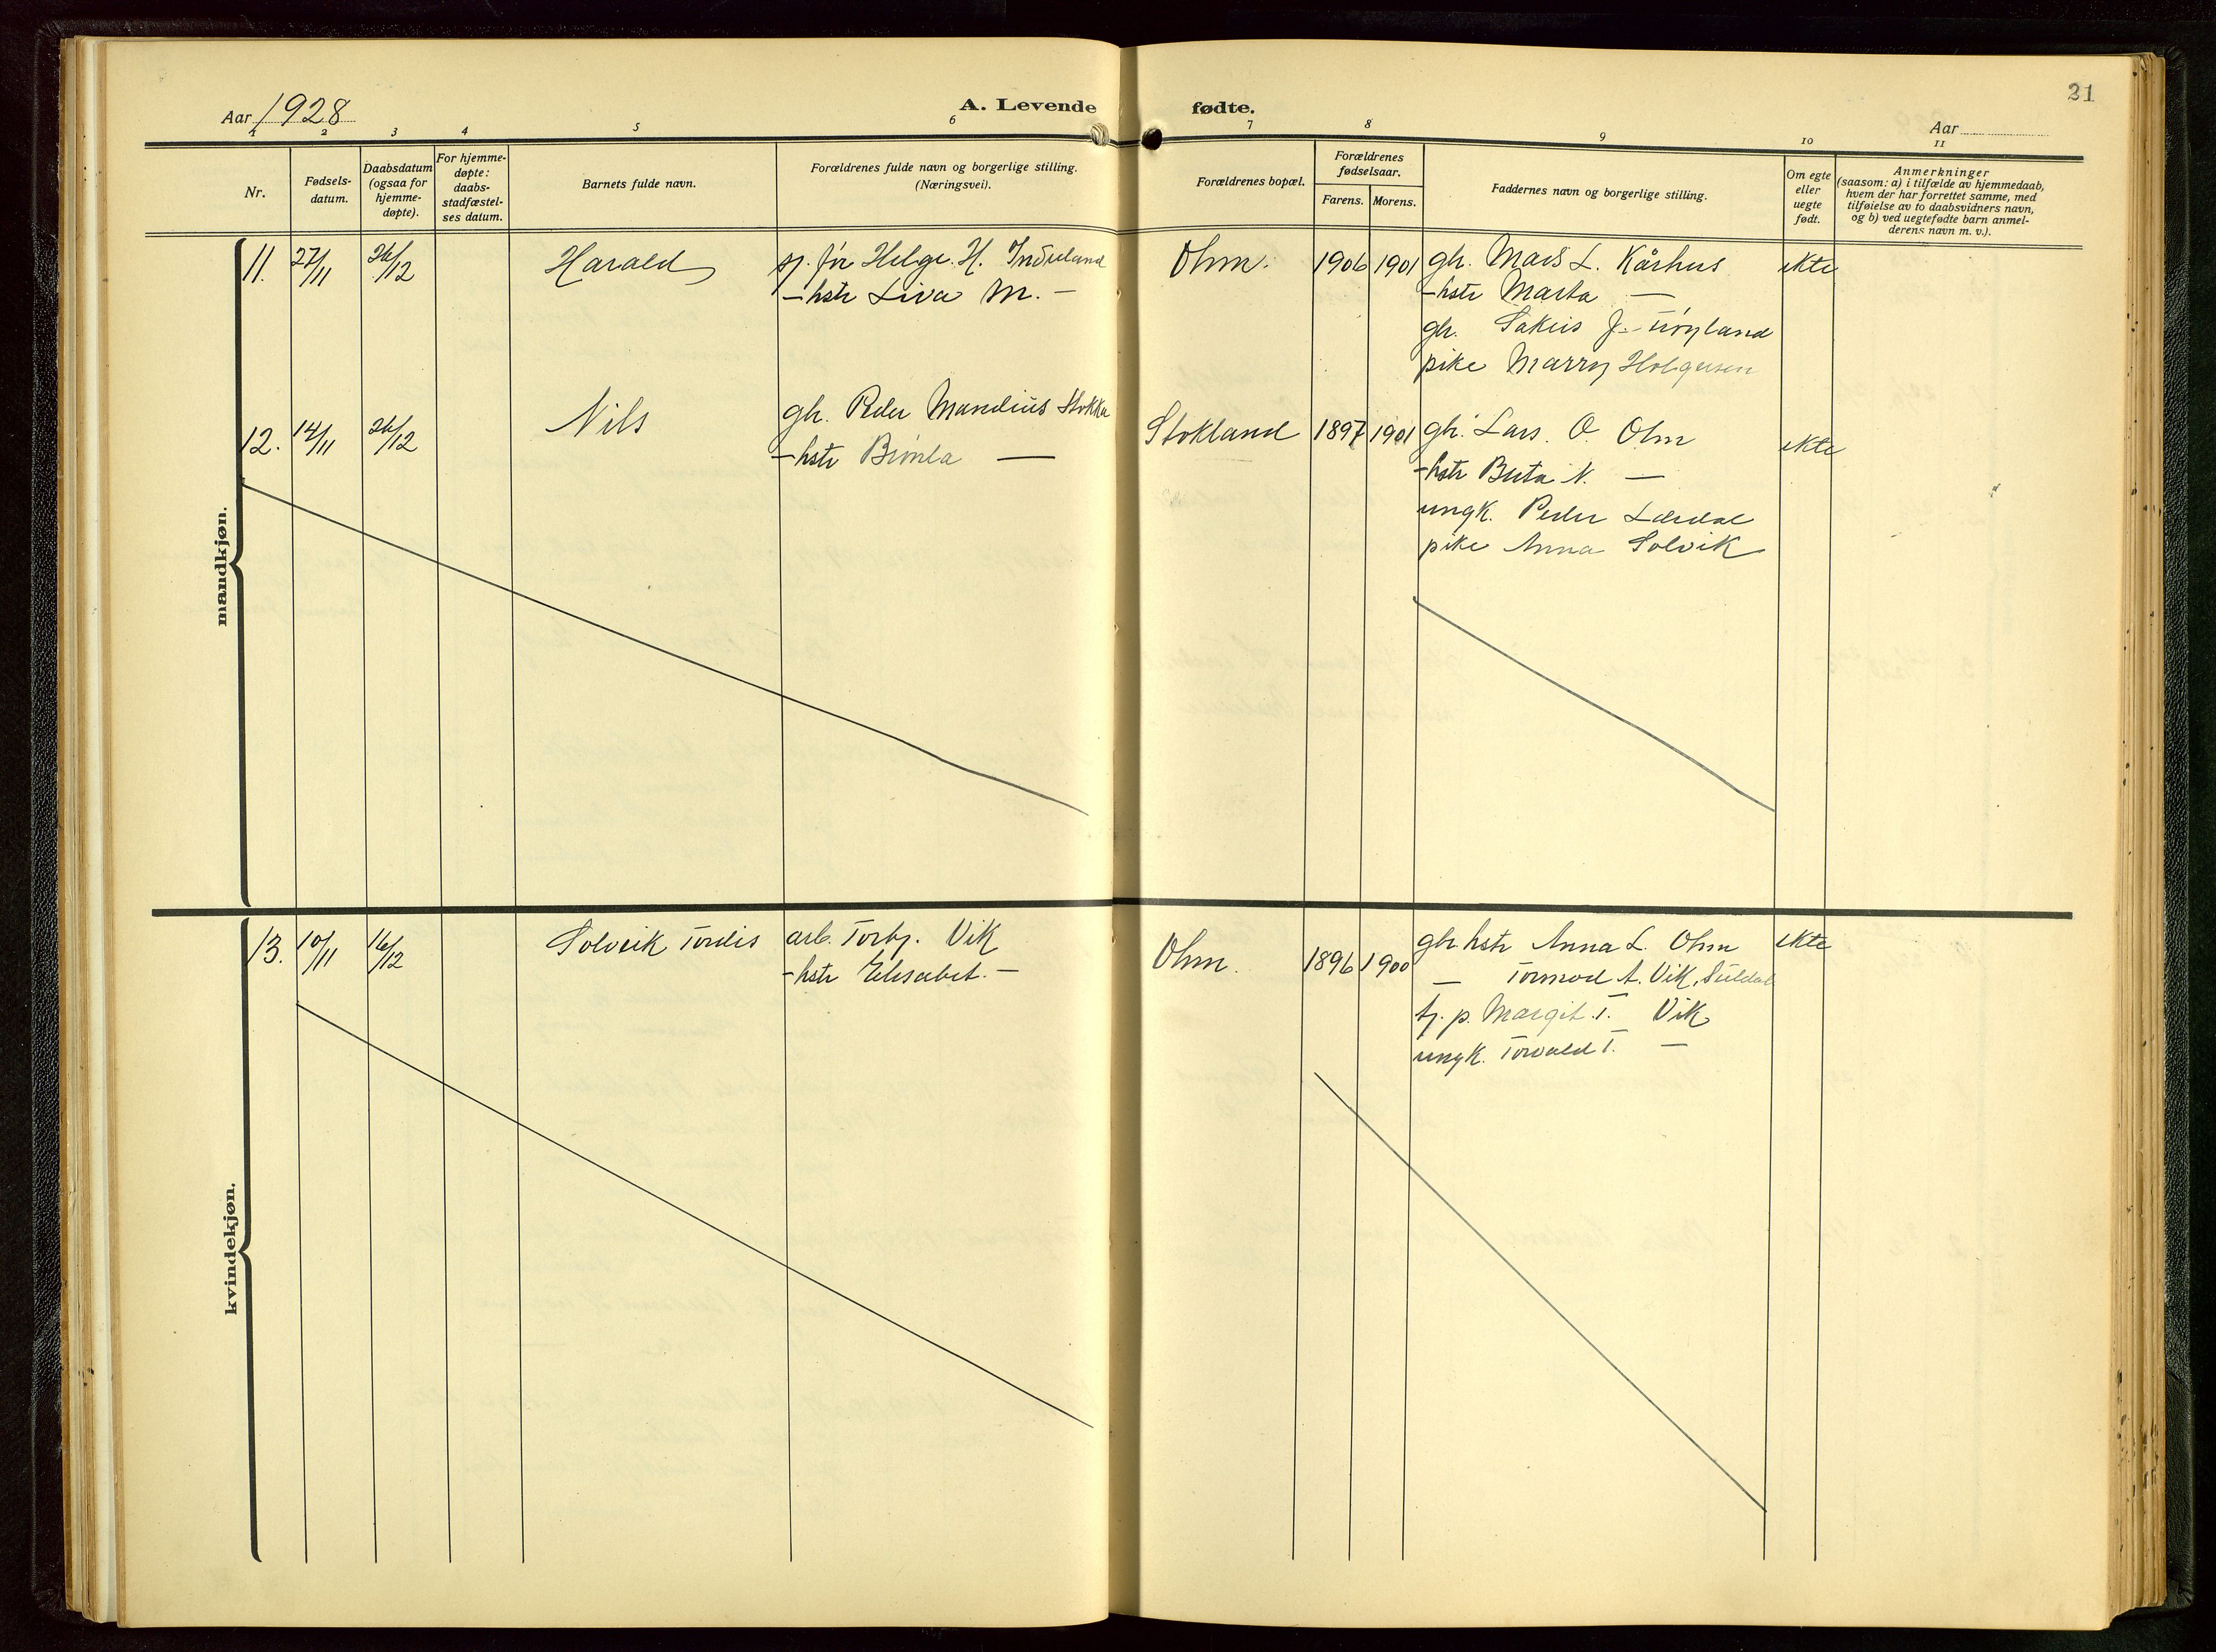 21
Aar 1928
A. Levende fødte.
Aar
1 2 3 4 5 6 7 8 9 10 11
Nr.
Fødsels-
datum.
Daabsdatum
(ogsaa for
hjemme-
døpte).
For hjemme-
døpte:
daabs-
stadfæstel-
ses datum.
Barnets fulde navn.
Forældrenes fulde navn og borgerlige stilling.
(Næringsvei).
Forældrenes bopæl.
Forældrenes
fødselsaar.
Farens. Morens.
Faddernes navn og borgerlige stilling.
Om egte
eller
uegte
født.
Anmerkninger
(saasom: a) i tilfælde av hjemmedaab,
hvem der har forrettet samme, med
tilføielse av to daabsvidners navn,
og b) ved uegtefødte barn anmel-
derens navn m. v.).
mandkjøn.
11. 27/11 26/12 Harald
Helge H. Indreland
- hstr Liva M. —
Ohm. 1906 1901
gbr. Mads L. Kårhus
- hstr Marta —
gbr. Sakris J.
pike Marry Holgersen
ekte
12. 14/11 26/12 Nils
gbr. Peder Mandius Stokka
- hstr —
Stokland 1897 1901
gbr. Lars O. Ohm
- hstr Berta N. —
ungk. Peder Lærdal
pike Anna Solvik
ekte
kvindekjøn.
13. 10/11 16/12 Solveik Tordis
arb. Torbj. Vik
- hstr Elisabet. —
Ohm. 1896 1900
gbr. hstr Anna L. Ohm
— Tormod A. Vik, Suldal
tj. p. Margit T. Vik
ungk. Torvald T. —
ekte